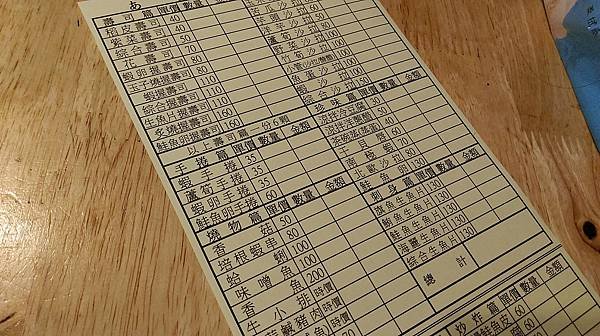 壽司篇 單價 數量 金額
稻皮壽司 40
紫菜壽司 40
綜合壽司 50
花壽司 70
蝦卵握壽司 80
玉子燒握壽司 80
蝦握壽司 110
綜合握壽司 110
生魚片握壽司 110
炙燒握壽司 160
鮭魚卵握壽司 160
以上壽司篇一份6顆
手捲篇 單價 數量 金額
蝦手捲 35
蘆筍手捲 35
蝦卵手捲 35
鮭魚卵手捲 60
燒物篇 單價 數量 金額
香菇 50
培根蝦串 80
蛤蜊 100
味噌魚 100
香魚 200
牛小排 時價
鹹豬肉 時價
瓜沙拉
蘆筍沙拉
野菜沙拉
竹筍沙拉
魚蛋沙拉 100
蝦沙拉 100
綜合沙拉 150
珍味篇 單價 數量 金額
涼拌冷豆腐 30
涼拌洋蟹腳 50
茶碗蒸(蒸蛋) 40
干貝唇 60
南極蝦 70
北歐沙拉 80
鮭魚卵 130
刺身篇 單價 數量 金額
旗魚生魚片 130
鮪魚生魚片 130
鮭魚生魚片 130
海鱺生魚片 130
綜合生魚片 130
總計
炒炸篇 單價 數量 金額
鮭魚皮 60